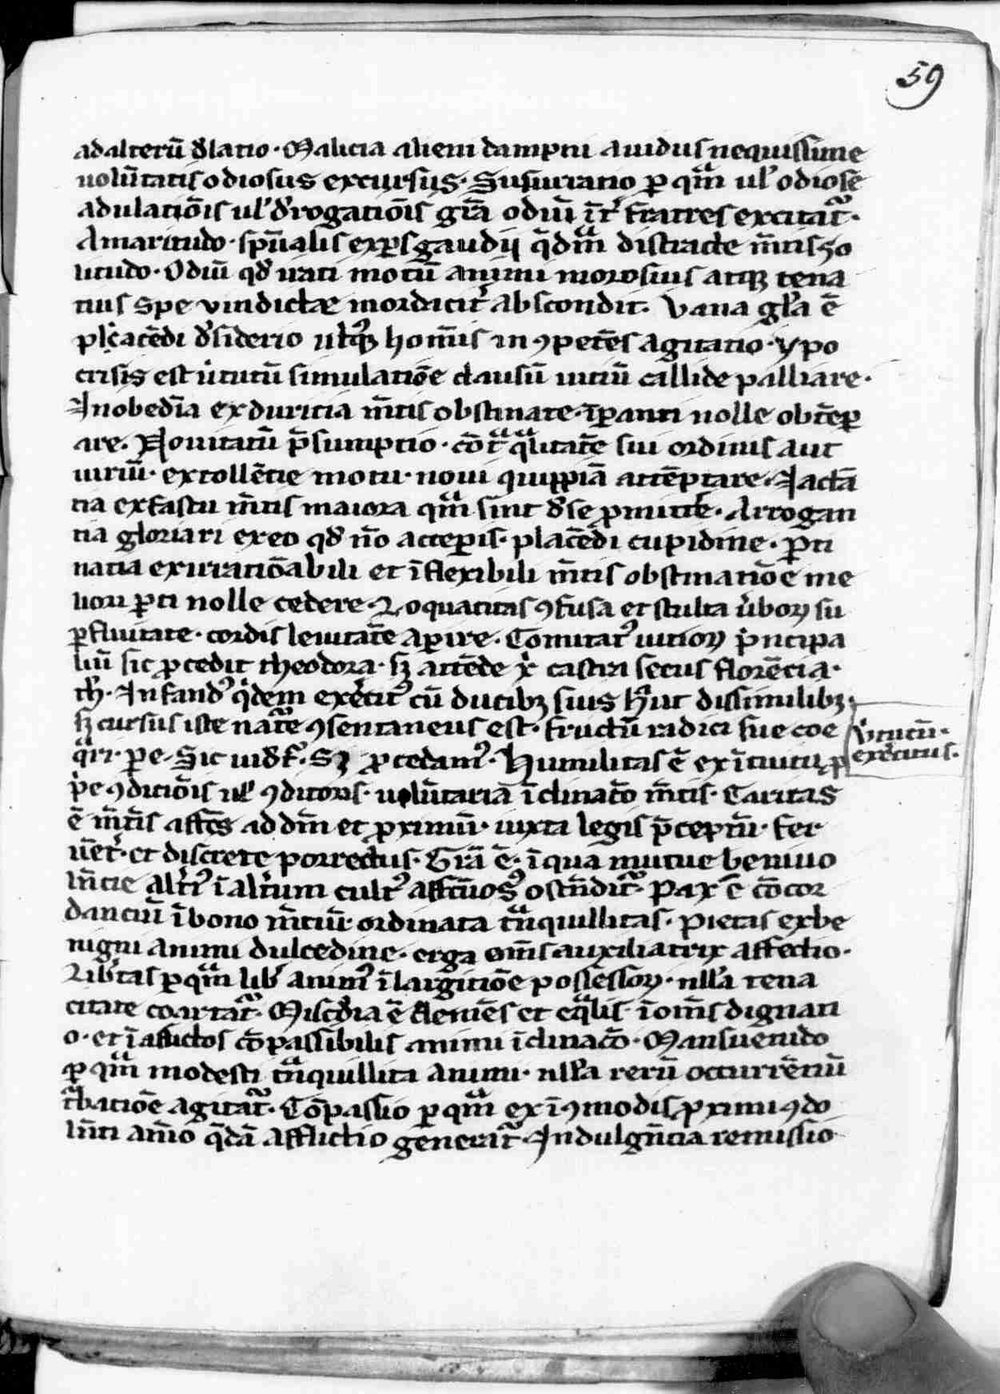 59
ad alterū d̾latio · Malicia alieni dampni auidus nequissime
uolūtatis odiosus excursus · Susurratio ꝑ qᷓm ul̾ odiose
adulatiōis ul̾ d̾rogatiōis gr̄a odiū īt̾ fratres excitat᷑ ·
Amaritudo · spūalis expers gaudij q̄dᷓm distracte m̄tis so
litudo · Odiū qd̾ uati motū animi morosius atqꝫ tena
tius spe vindictæ mordacit̾ abscondit · Vana gl̾a ē
placēdi d̾siderio hom̄is in ꝯpetēs agitatio · ypo
crisis est u̾tutū simulatiōe clausū uitiū callide palliare ·
Inobedīa ex duricia m̄tis obstinate · īꝑanti nolle obtēꝑ
are · Nouitatū p̄sumptio · cōtᷓ qᷓlitatē sui ordinis aut
uiriū · extollētie motu · noui quippiā attēptare · Iactā
tia ex fastu m̄tis maiora qᷓm sint d̾ se ꝓmitte̾ · Arrogan
tia gloriari ex eo qd̾ nō acceꝑis · placēdi cupidine · ꝑti
natia ex irratiōabili et īflexibili m̄tis obstinatiōe me
liori ꝑti nolle cedere · Loquatitas ꝯfusa et stulta u̾boꝝ su
ꝑfluitate · cordis leuitatē aꝑire · Comitat᷑ uitioꝝ p̾ncipa
liū sic ꝓcedit theodora · sꝫ attēde x̄ castra secus florētia ·
th̾ · Infandꝰ qͥdem exe̾citꝰ cū ducibꝫ suis h̾ut dissimilibꝫ ·
sꝫ cursus iste nat̾e ꝯsentaneus est · fructū radici sue coe
qᷓri · ꝑe · Sic uid̾t᷑ · Sꝫ ꝓcedamꝰ · Humilitas ē ex ītuitu ꝓ
p̾e ꝯditiōis ul̾ ꝯditoris · uolūtariā īclinatō m̄tis · Caritas
ē m̄tis affcs̄ ad dm̄ et ꝓximū · iuxta legis p̄ceptū · fer
uēt̾ · et discrete porrectus · Gr̄a ē · ī qua mutue beniuo
ln̄cie alt̾iꝰ ī alt̾um cultꝰ affcūosꝰ ostn̄dit᷑ · Pax ē cōcor
dantiū ī bono m̄tiū · ordinata tᷓnquillitas · Pietas ex be
nigni animi dulcedine · erga om̄s auxiliatrix affectio ·
Lib̾tas ꝑ qᷓm lib̾ animꝰ ī largitiōe possessoꝝ · nll̾a tena
citate coartat᷑ · Misc̾dia ē clemēs et eqᷓlis ī om̄s dignati
o · et ī afflictos cōpassibilis animi īclinatō · Mansuetudo
ꝑ qᷓm modesti tᷓnquillita animi · nll̾a rerū occurrētiū
tᷓbatiōe agitat᷑ · Cōpassio ꝑ qᷓm ex īꝯmodis ꝓximi ꝯdo
ln̄ti aīo q̄dā afflictio generat᷑ · Indulgn̄tia remissio
V̾tutū ·
exe̾citus ·